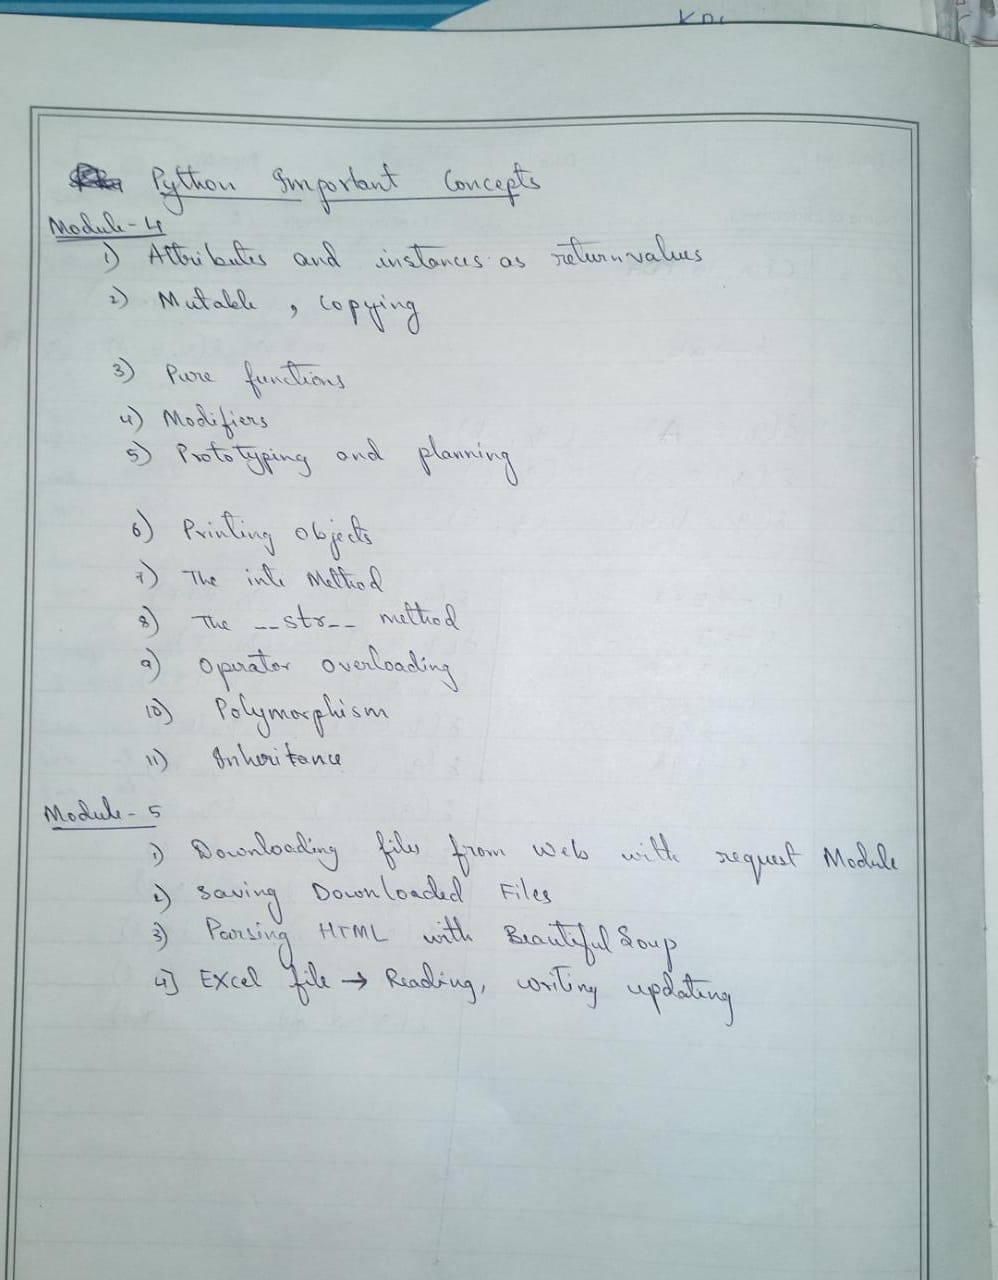 Python Important Concepts
Module-4
1) Attributes and instances as return values
2) Mutable, Copying
3) Pure functions
4) Modifiers
5) Prototyping and planning
6) Printing objects
7) The inti Method
8) The __str__ method
9) Operator overloading
10) Polymorphism
11) Inheritance
Module-5
1) Downloading files from Web with request Module
2) Saving Downloaded Files
3) Parsing HTML with Beautiful Soup
4] Excel file → Reading, writing updating